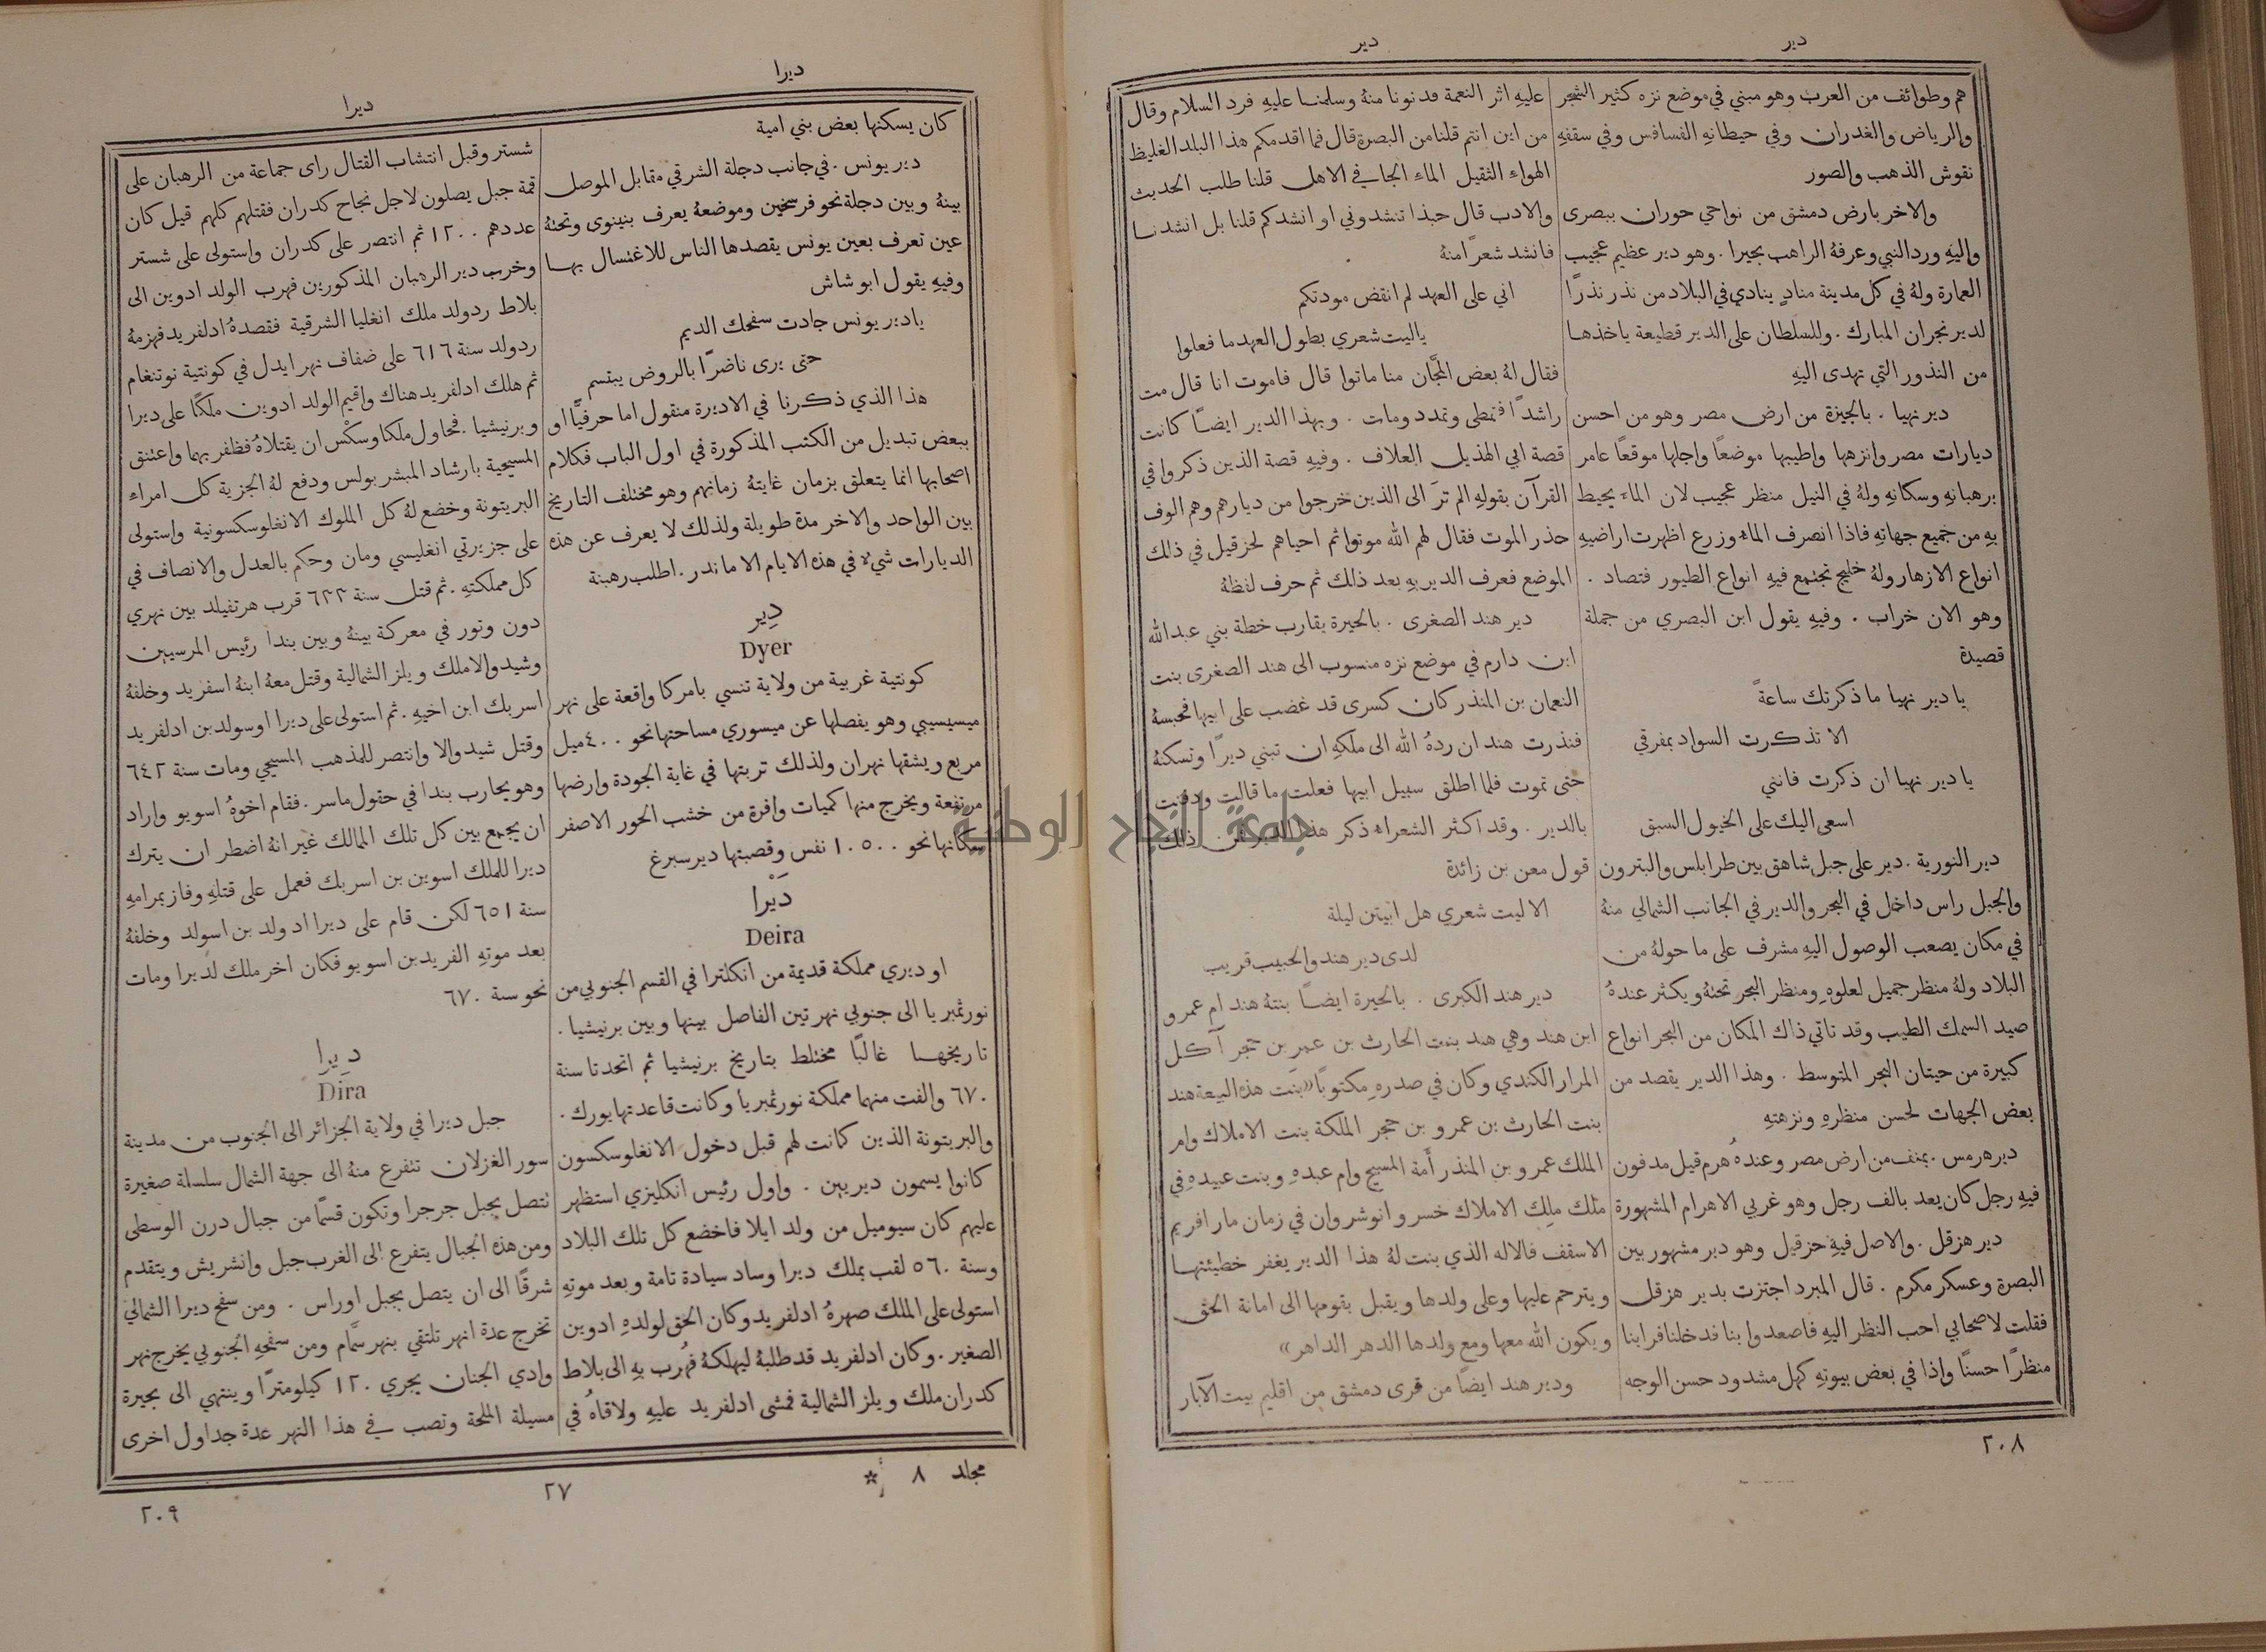 دير
دير
هم وطوائف من العرب وهو مبني في موضع نزه كثير الشجر
والرياض والغدران وفي حيطانهِ الفسافس وفي سقفهِ
نقوش الذهب والصور
والاخر بارض دمشق من نواحي حوران ببصرى
واليهِ ورد النبي وعرفهُ الراهب بحيرا . وهو دير عظيم عجيب
العمارة ولهُ في كل مدينة منادٍ ينادي في البلاد من نذر نذرًا
لدير نجران المبارك . وللسلطان على الدير قطيعة ياخذها
من النذور التي تهدى اليهِ
دير نهيا . بالجيزة من ارض مصر وهو من احسن
ديارات مصر وانزهها واطيبها موضعًا واجلها موقعًا عامر
برهبانهِ وسكانهِ ولهُ في النيل منظر عجيب لان الماء يحيط
بهِ من جميع جهاتهِ فاذا انصرف الماء وزرع اظهرت اراضيهِ
انواع الازهار ولهُ خليج تجتمع فيهِ انواع الطيور فتصاد .
وهو الان خراب . وفيهِ يقول ابن البصري من جملة
قصيدة
يا دير نهيا ما ذكرتك ساعةً
الا تذكرت السواد بمفرقي
يا دير نهيا ان ذكرت فانني
اسعى اليك على الخيول السبق
دير النورية . دير على جبل شاهق بين طرابلس والبترون
والجبل راس داخل في البحر والدير في الجانب الشمالي منهُ
في مكان يصعب الوصول اليهِ مشرف على ما حولهُ من
البلاد ولهُ منظر جميل لعلوهِ ومنظر البحر تحتهُ ويكثر عندهُ
صيد السمك الطيب وقد تاتي ذاك المكان من البحر انواع
كبيرة من حيتان البحر المتوسط . وهذا الدير يقصد من
بعض الجهات لحسن منظرهِ ونزهتهِ
دير هرمس . بمنف من ارض مصر وعندهُ هرم قيل مدفون
فيهِ رجل كان يعد بالف رجل وهو غربي الاهرام المشهورة
دير هزقل . والاصل فيهِ حزقيل وهو دير مشهور بين
البصرة وعسكر مكرم . قال المبرد اجتزت بدير هزقل
فقلت لاصحابي احب النظر اليهِ فاصعدوا بنا فدخلنا فراينا
منظرًا حسنًا واذا في بعض بيوتهِ كهل مشدود حسن الوجه
عليهِ اثر النعمة فدنونا منهُ وسلمنا عليهِ فرد السلام وقال
من اين انتم قلنا من البصرة قال فما اقدمكم هذا البلد الغليظ
الهواء الثقيل الماء الجافي الاهل قلنا طلب الحديث
والادب قال حبذا تنشدوني او انشدكم قلنا بل انشدنا
فانشد شعرًا منهُ
اني على العهد لم انقض مودتكم
ياليت شعري بطول العهد ما فعلوا
فقال لهُ بعض المجَّان منا ماتوا قال فاموت انا قال مت
راشدًا فتمطى وتمدد ومات . وبهذا الدير ايضًا كانت
قصة ابي الهذيل العلاف . وفيهِ قصة الذين ذكروا في
القرآن بقولهِ الم ترَ الى الذين خرجوا من ديارهم وهم الوف
حذر الموت فقال لهم الله موتوا ثم احياهم لحزقيل في ذلك
الموضع فعرف الدير بهِ بعد ذلك ثم حرف لفظهُ
دير هند الصغرى . بالحيرة يقارب خطة بني عبد الله
ابن دارم في موضع نزه منسوب الى هند الصغرى بنت
النعمان بن المنذر كان كسرى قد غضب على ابيها فحبسهُ
فنذرت هند ان ردهُ الله الى ملكهِ ان تبني ديرًا وتسكنهُ
حتى تموت فلما اطلق سبيل ابيها فعلت ما قالت ودفنت
بالدير . وقد اكثر الشعراء ذكر هذا الدير فمن ذلك
قول معن بن زائدة
الا ليت شعري هل ابيتن ليلة
لدى دير هند والحبيب قريب
دير هند الكبرى . بالحيرة ايضًا بنتهُ هند ام عمرو
ابن هند وهي هند بنت الحارث بن عمرِ بن حجر آكل
المرار الكندي وكان في صدرهِ مكتوبًا «بنت هذه البيعة هند
بنت الحارث بن عمرو بن حجر الملكة بنت الاملاك وام
الملك عمرو بن المنذر أَمة المسيح وام عبدهِ وبنت عبيدهِ في
ملك ملِك الاملاك خسرو انوشروان في زمان مار افريم
الاسقف فالاله الذي بنت لهُ هذا الدير يغفر خطيئتها
ويترحم عليها وعلى ولدها ويقبل بقومها الى امانة الحق
ويكون الله معها ومع ولدها الدهر الداهر»
ودير هند ايضًا من قرى دمشق من اقليم بيت الآبار
٢٠٨
جامعة النجاح الوطنية
ديرا
ديرا
كان يسكنها بعض بني امية
دير يونس . في جانب دجلة الشرقي مقابل الموصل
بينهُ وبين دجلة نحو فرسخين وموضعهُ يعرف بنينوى وتحتهُ
عين تعرف بعين يونس يقصدها الناس للاغتسال بها
وفيهِ يقول ابو شاش
يا دير يونس جادت سفحك الديم
حتى يرى ناضرًا بالروض يبتسم
هذا الذي ذكرنا في الاديرة منقول اما حرفيًّا او
ببعض تبديل من الكتب المذكورة في اول الباب فكلام
اصحابها انما يتعلق بزمان غايتهُ زمانهم وهو مختلف التاريخ
بين الواحد والاخر مدة طويلة ولذلك لا يعرف عن هذه
الديارات شيء في هذه الايام الا ما ندر . اطلب رهبنة
دِير
Dyer
كونتية غربية من ولاية تنسي بامركا واقعة على نهر
ميسيسيبي وهو يفصلها عن ميسوري مساحتها نحو ٤٠٠ ميل
مربع ويشقها نهران ولذلك تربتها في غاية الجودة وارضها
مرتفعة ويخرج منها كميات وافرة من خشب الحور الاصفر
سكانها نحو ١٠٥٠٠ نفس وقصبتها ديرسبرغ
دَيْرا
Deira
او ديري مملكة قديمة من انكلترا في القسم الجنوبي من
نورثمبريا الى جنوبي نهر تين الفاصل بينها وبين برنيشيا .
تاريخها غالبًا مختلط بتاريخ برنيشيا ثم اتحدتا سنة
٦٧٠ والفت منهما مملكة نورثمبريا وكانت قاعدتها يورك .
والبريتونة الذين كانت لهم قبل دخول الانغلوسكسون
كانوا يسمون ديريين . واول رئيس انكليزي استظهر
عليهم كان سيوميل من ولد ايلا فاخضع كل تلك البلاد
وسنة ٥٦٠ لقب بملك ديرا وساد سيادة تامة وبعد موتهِ
استولى على الملك صهرهُ ادلفريد وكان الحق لولدهِ ادوين
الصغير . وكان ادلفريد قد طلبهُ ليهلكهُ فهُرب بهِ الى بلاط
كدران ملك ويلز الشمالية فمشى ادلفريد عليهِ ولاقاهُ في
شستر وقبل انتشاب القتال راى جماعة من الرهبان على
قمة جبل يصلون لاجل نجاح كدران فقتلهم كلهم قيل كان
عددهم ١٢٠٠ ثم انتصر على كدران واستولى على شستر
وخرب دير الرهبان المذكورين فهرب الولد ادوين الى
بلاط ردولد ملك انغليا الشرقية فقصدهُ ادلفريد فهزمهُ
ردولد سنة ٦١٦ على ضفاف نهر ايدل في كونتية نوتنغام
ثم هلك ادلفريد هناك واقيم الولد ادوين ملكًا على ديرا
وبرنيشيا . فحاول ملكا وسكْس ان يقتلاهُ فظفر بهما واعتنق
المسيحية بارشاد المبشر بولس ودفع لهُ الجزية كل امراء
البريتونة وخضع لهُ كل الملوك الانغلوسكسونية واستولى
على جزيرتي انغليسي ومان وحكم بالعدل والانصاف في
كل مملكتهِ . ثم قتل سنة ٦٣٣ قرب هرتفيلد بين نهري
دون وتور في معركة بينهُ وبين بندا رئيس المرسيين
وشيدوالا ملك ويلز الشمالية وقتل معهُ ابنهُ اسفريد وخلفهُ
اسريك ابن اخيهِ . ثم استولى على ديرا اوسولد بن ادلفريد
وقتل شيدوالا وانتصر للمذهب المسيحي ومات سنة ٦٤٢
وهو يحارب بندا في حقول ماسر . فقام اخوهُ اسويو واراد
ان يجمع بين كل تلك الممالك غير انهُ اضطر ان يترك
ديرا للملك اسوين بن اسريك فعمل على قتلهِ وفاز بمرامهِ
سنة ٦٥١ لكن قام على ديرا ادولد بن اسولد وخلفهُ
بعد موتهِ الفريد بن اسويو فكان اخر ملك لديرا ومات
نحو سنة ٦٧٠
ديرا
Dira
جبل ديرا في ولاية الجزائر الى الجنوب من مدينة
سور الغزلان تتفرع منهُ الى جهة الشمال سلسلة صغيرة
تتصل بجبل جرجرا وتكون قسمًا من جبال درن الوسطى
ومن هذه الجبال يتفرع الى الغرب جبل وانشريش ويتقدم
شرقًا الى ان يتصل بجبل اوراس . ومن سفح ديرا الشمالي
تخرج عدة انهر تلتقي بنهر سمَّام ومن سفحهِ الجنوبي يخرج نهر
وادي الجنان يجري ١٢٠ كيلومترًا وينتهي الى بحيرة
مسيلة الملحة وتصب في هذا النهر عدة جداول اخرى
مجلد ٨ *
٢٧
٢٠٩